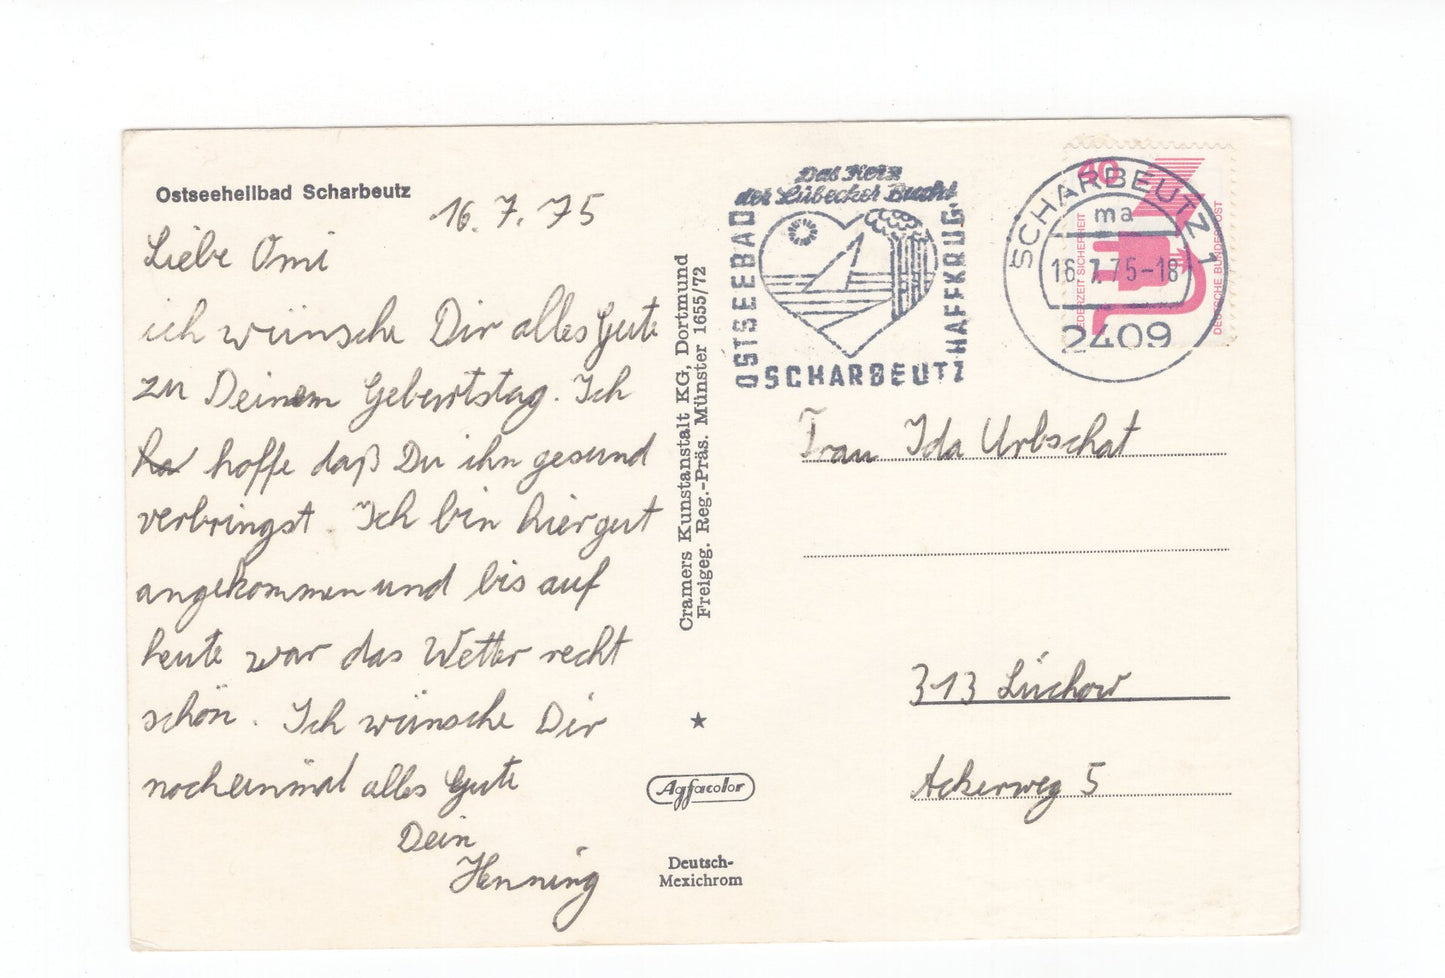 Ostseeheilbad Scharbeutz
16.7.75
Liebe Omi
ich wünsche Dir alles Gute
zu Deinem Geburtstag. Ich
ha hoffe daß Du ihn gesund
verbringst. Ich bin hier gut
angekommen und bis auf
heute war das Wetter recht
schön. Ich wünsche Dir
nocheinmal alles Gute
Dein
Henning
Cramers Kunstanstalt KG, Dortmund
Freigeg. Reg.-Präs. Münster 1655/72
★
Agfacolor
Deutsch-
Mexichrom
Das Herz
der Lübecker Bucht
OSTSEEBAD
SCHARBEUTZ
HAFFKRUG
SCHARBEUTZ 1
ma
16.7.75-18
2409
40
JEDERZEIT SICHERHEIT
DEUTSCHE BUNDESPOST
Frau Ida Urbschat
313 Lüchow
Ackerweg 5